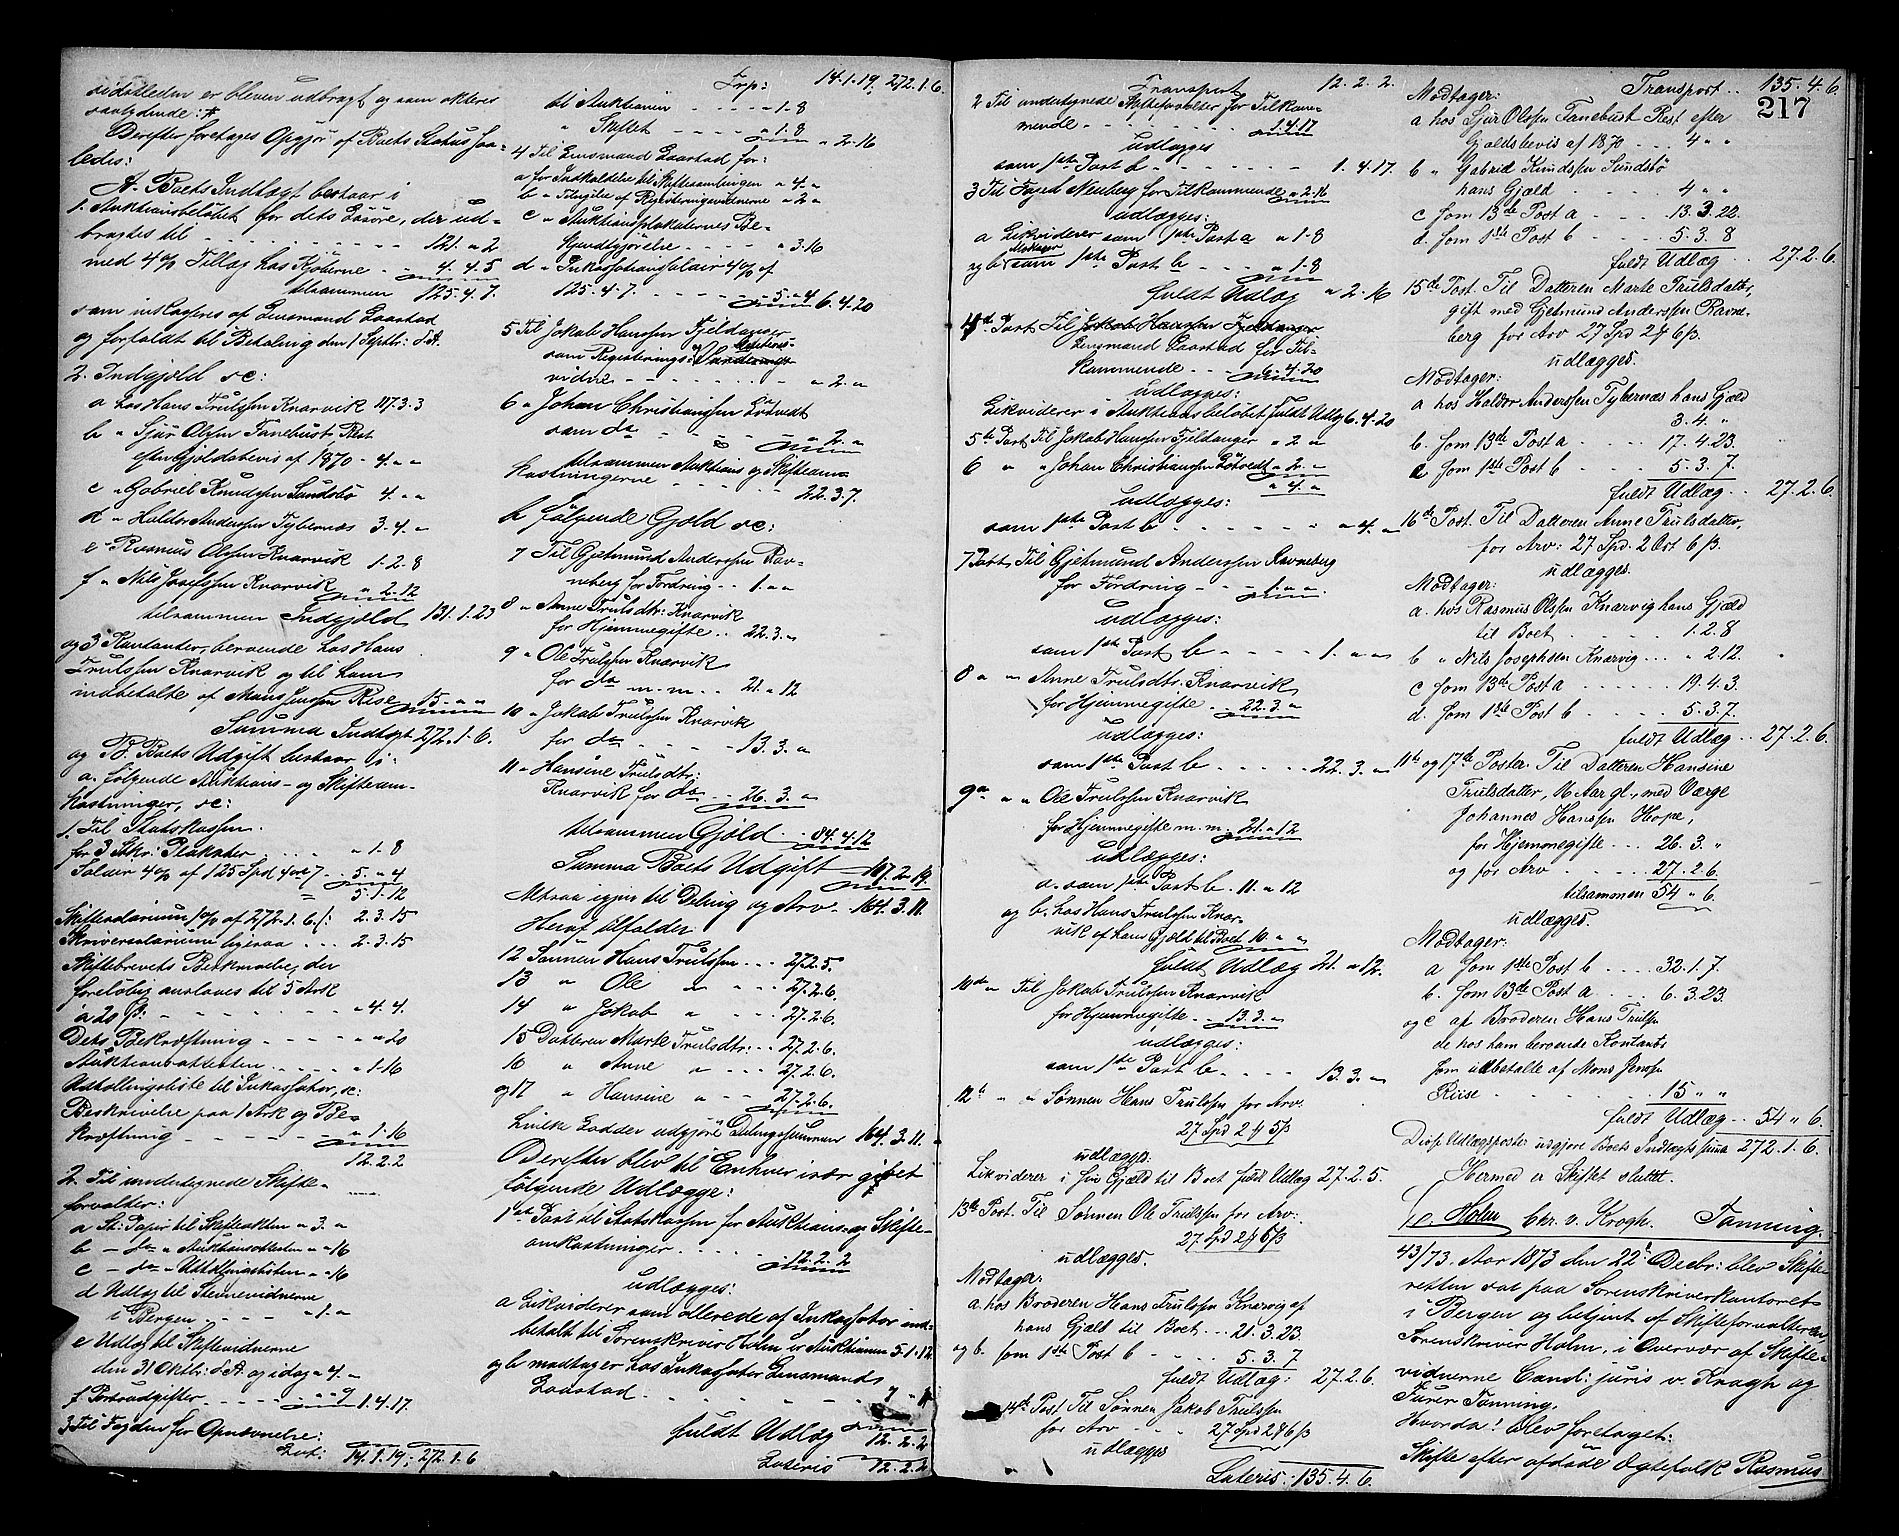 sidstleden er bleven udbragt og som akteres
saalydende:
Derefter foretoges Opgjør af Boets Status saa-
ledes:
A. Boets Indtægt bestaar i
1. Auktionsbeløbet for dets Løsøre, der ud-
bragtes til 121. " 2
med 4 % Tillæg hos Kjøberne 4. 4. 5
tilsammen 125. 4. 7.
som inkasseres af Lensmand Laastad
og forfaldt til Betaling den 1 Septbr: d.A.
2. Indgjæld sc:
a hos Hans Trulssen Knarvik 117. 3. 3
b " Sjur Olsen Tanebust Rest
efter Gjældsbevis af 1870 - 4. " "
c " Gabriel Knudssen Sundsbø 4. " "
d " Haldor Anderssen Tybernæs 3. 4. "
e " Rasmus Olssen Knarvik 1. 2. 8
f " Nils Josefssen Knarvik " 2. 12
tilsammen Indgjæld 131. 1. 23
og 3 Kontanter, beroende hos Hans
Trulssen Knarvik og til ham
indbetalte af Mons Jenssen Riise 15. " "
Summa Indtægt 272. 1. 6.
og B. Boets Udgift bestaar i:
a. følgende Auktions- og Skifteom-
kostninger, sc:
1. Til Statskassen
for 3 Stkr: Plakater " 1. 8
Salær 4 % af 125 Spd 4 ort 7 5. " 4
5. 1. 12
Skiftesalarium 1 % af 272. 1. 6 ß: 2. 3. 15
Skriversalarium ligesaa 2. 3. 15
Skiftebrevets Beskrivelse, der
foreløbig anslaaes til 5 Ark
a 20 ß: " 4. 4.
Dets Bekræftning " " 20
Auktionsattesten " 1. 16
Udtællingsliste til Inkassator, sc:
Beskrivelse paa 1 Ark og Be-
kræftning " 1. 16
12. 2. 2
2. Til undertegnede Skifte-
forvalter:
a St: Papir til Skifteakten " 3. "
b - do " Auktionsattesten " " 16
c - do " Udtællingslisten " " 16
d Udlæg til Stevnevidnerne
i Bergen " 1. "
e Udlæg til Skiftevidnerne
den 31 Oktbr: d.A. og idag " 4. "
f Portoudgifter " " 9 1. 4. 17
3 Til Fogden for Opnævnelse:
Lat: 14. 1. 19; 272. 1. 6
Trp: 14. 1. 19; 272. 1. 6
til Auktionen " 1. 8
" Skiftet " 1. 8 " 2. 16
4 Til Lensmand Laastad for:
a for Indkaldelse til Skiftesamlingen " 4. "
b " Tilsigelse af Registreringsvidnerne " 2. "
c " Auktionsplakaternes Be-
kjendtgjørelse " 3. 16
d " Inkassationssalair 4 % af
125. 4. 7. 5. " 4 6. 4. 20
5 Til Jakob Hanssen Fjeldanger
som Registrerings- og Vurderings-
vidne " 2. "
6 " Johan Christianssen Løtvedt
som do " 2. "
tilsammen Auktions og Skifteom-
kostningerne 22. 3. 7.
b følgende Gjæld sc:
7 Til Gjetmund Anderssen Rav-
neberg for Fordring 1. " "
8 " Anne Trulsdtr: Knarvik
for Hjemmegifte 22. 3. "
9 " Ole Trulssen Knarvik
for do m. m. 21. " 12
10 " Jakob Trulssen Knarvik
for do 13. 3. "
11 " Hansine Trulsdtr:
Knarvik for do 26. 3. "
tilsammen Gjæld 84. 4. 12
Summa Boets Udgift 107. 2. 19.
Altsaa igjen til Deling og Arv 164. 3. 11.
Heraf tilfalder
12 Sønnen Hans Trulssen 27. 2. 5.
13 " Ole " 27. 2. 6.
14 " Jakob " 27. 2. 6.
15 Datteren Marte Trulsdtr: 27. 2. 6.
16 " Anne " 27. 2. 6.
og 17 " Hansine " 27. 2. 6.
hvilke Lodder udgjøre Delingssummen 164. 3. 11.
Derefter blev til Enhver især gjort
følgende Udlægge:
1ste Post til Statskassen for Auktions- og Skifte-
omkostninger 12. 2. 2
udlægges:
a Likviderer som allerede af Inkassator ind-
betalt til Sorenskriver Holm er Auktionen 5. 1. 12
og b modtager hos Inkassator Lensmand
Laastad 7
fuldt Udlæg 12. 2. 2
Lateris 12. 2. 2
Transport 12. 2. 2.
2 Til undertegnede Skifteforvalter for Tilkom-
mende 1. 4. 17
udlægges
som 1ste Post b 1. 4. 17.
3 Til Foged Neuberg for Tilkommende " 2. 16
udlægges:
a Likviderer som 1ste Post a " 1. 8
og b Modtager som 1ste Post b " 1. 8
fuldt Udlæg " 2. 16
4de Post Til Jakob Hanssen Fjeldanger
Lensmand Laastad for Til-
kommende 6. 4. 20
udlægges:
Likviderer i Auktionsbeløbet fuldt Udlæg 6. 4. 20
5te Post Til Jakob Hanssen Fjeldanger " 2. "
6 " " Johan Christianssen Løtvedt " 2. "
" 4. "
udlægges:
som 1ste Post b " 4. "
7 Post, Til Gjetmund Anderssen Ravneberg
for Fordring 1. " "
udlægges:
som 1ste Post b 1. " "
8 " " Anne Trulsdtr. Knarvik
for Hjemmegifte 22. 3. "
udlægges:
som 1ste Post b 22. 3. "
9 " " Ole Trulssen Knarvik
for Hjemmegifte m. m. 21. " 12
udlægges:
a. som 1ste Post b. 11. " 12
og b. hos Hans Trulssen Knar-
vik af hans Gjæld til Boet 10. " "
fuldt Udlæg 21. " 12.
10de " Til Jakob Trulssen Knarvik
for Hjemmegifte 13. 3. "
udlægges:
som 1ste Post b. 13. 3. "
12te " " Sønnen Hans Trulssen for Arv.
27 Spd 2 ₰ 5 ß
udlægges
Likviderer i sin Gjæld til Boet fuldt Udlæg 27. 2. 5.
13de Post. Til Sønnen Ole Trulssen for Arv:
27. Spd 2 ₰ 6 ß
udlægges.
Modtager:
a. hos Broderen Hans Trulssen Knarvig af
hans Gjæld til Boet 21. 3. 23.
og b. som 1ste Post b 5. 3. 7
fuldt Udlæg: 27. 2. 6.
14de Post Til Sønnen Jakob Trulssen
for Arv 27 Spd 2 ₰ 6 ß
udlægges
Lateris: 135. 4. 6.
Transport 135. 4. 6
217
Modtager:
a hos Sjur Olssen Tanebust Rest efter
Gjældsbevis af 1870 4 " "
b " Gabriel Knudssen Sundsbø
hans Gjæld 4 " "
c som 13de Post a 13. 3. 22.
d. som 1ste Post b 5. 3. 8
fuldt Udlæg 27. 2. 6.
15de Post Til Datteren Marte Trulsdatter,
gift med Gjetmund Anderssen Ravne-
berg for Arv 27 Spd 2 ₰ 6 ß.
udlægges.
Modtager:
a hos Haldor Anderssen Tybernæs hans Gjæld
3. 4. "
b. som 13de Post a 17. 4. 23.
c som 1ste Post b 5. 3. 7.
fuldt Udlæg 27. 2. 6.
16de Post. Til Datteren Anne Trulsdatter,
for Arv: 27 Spd. 2 Ort 6 ß.
udlægges.
Modtager:
a. hos Rasmus Olssen Knarvig hans Gjæld
til Boet 1. 2. 8
b " Nils Josephsen Knarvig " 2. 12.
c som 13de Post a 19. 4. 3.
d. som 1ste Post b 5. 3. 7.
fuldt Udlæg 27. 2. 6.
11te og 17de Poster. Til Datteren Hansine
Trulsdatter, 16 Aar gl., med Værge
Johannes Hanssen Hope,
for Hjemmegifte 26. 3. "
og for Arv 27. 2. 6.
tilsammen 54 " 6.
udlægges.
Modtager:
a som 1ste Post b 32. 1. 7.
b. som 13de Post a 6. 3. 23.
og c af Broderen Hans Trulssen
de hos ham beroende Kontanter
som udbetalte af Mons Jenssen
Riise 15 " "
fuldt Udlæg 54 " 6.
Disse Udlægsposter udgjøre Boets Indtægts suma 272. 1. 6.
Hermed er Skiftet sluttet.
Holm Chr. v. Krogh. Tønning.
43/73. Aar 1873 den 22de Decbr: blev Skifte-
retten sat paa Sorenskriverkontoret
i Bergen og betjent af Skifteforvalteren
Sorenskriver Holm, i Overvær af Skifte-
vidnerne Cand: juris v. Krogh og
Furer Tønning.
Hvorda! Blev foretaget:
Skifte efter afdøde Ægtefolk Rasmus